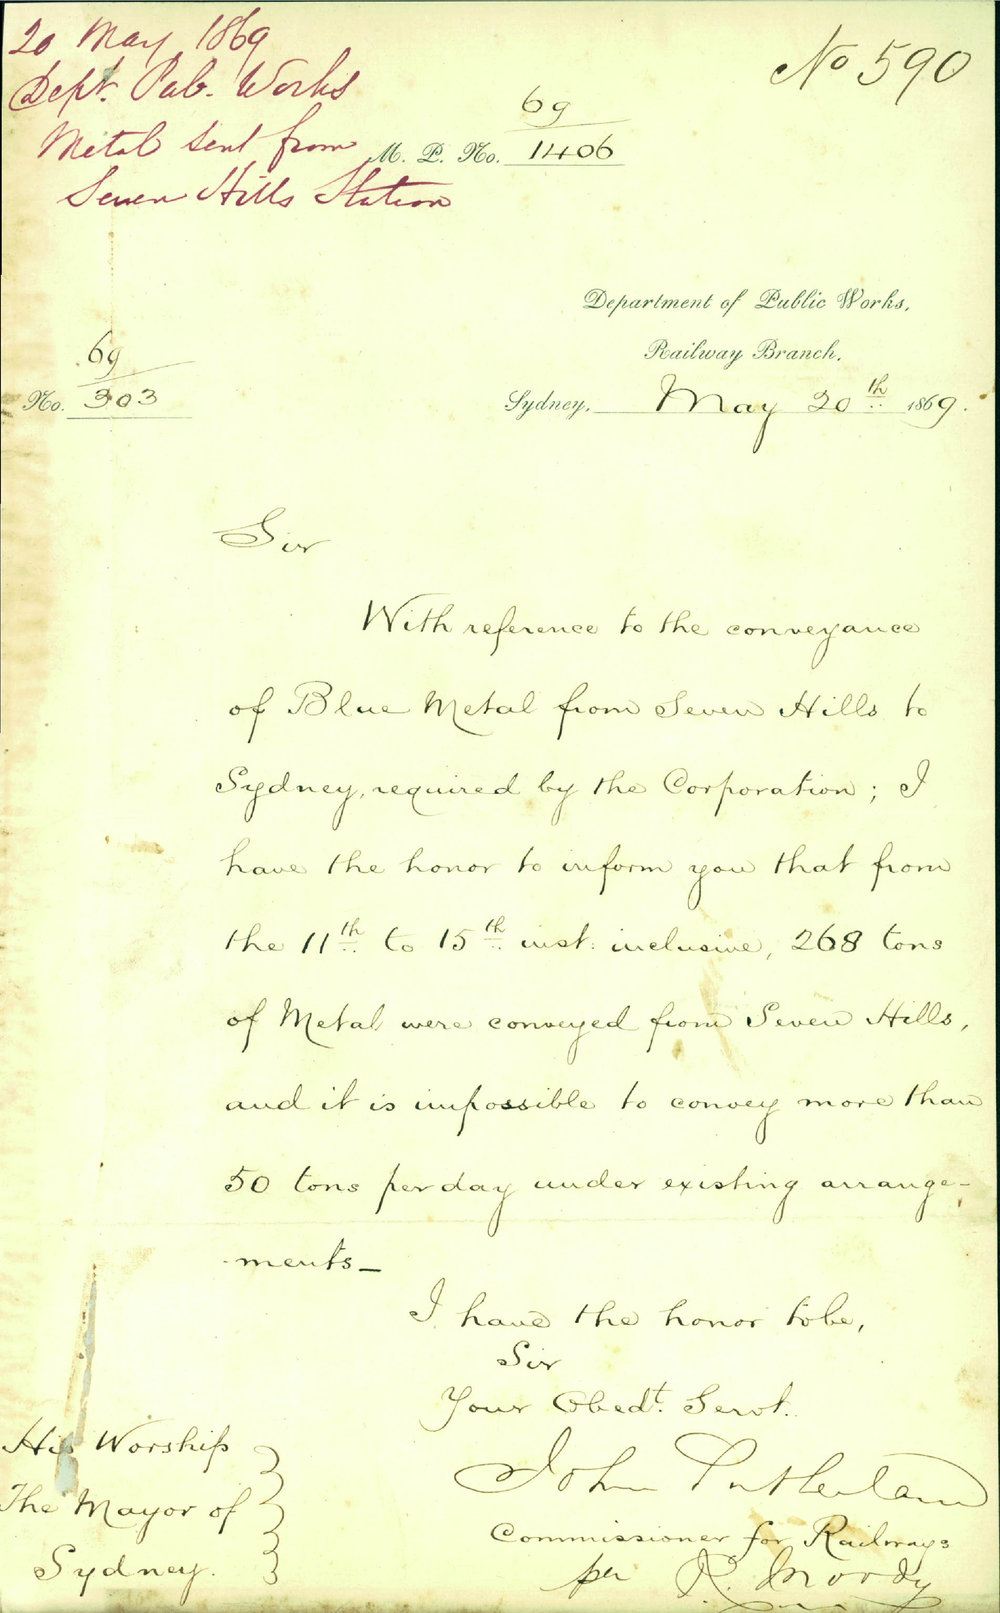 20 May 1869
Dept. Pub. Works
Metal sent from
Seven Hills Station
No 590
69
M. P. No. 1406
Department of Public Works,
Railway Branch.
69
No. 303
Sydney, May 20th 1869.
Sir
With reference to the conveyance
of Blue Metal from Seven Hills to
Sydney, required by the Corporation; I
have the honor to inform you that from
the 11th to 15th inst: inclusive, 268 tons
of Metal were conveyed from Seven Hills,
and it is impossible to convey more than
50 tons per day under existing arrange-
-ments_
I have the honor to be,
Sir
Your Obedt. Servt.
John Sutherland
Commissioner for Railways
per R. Moody
His Worship
The Mayor of
Sydney.